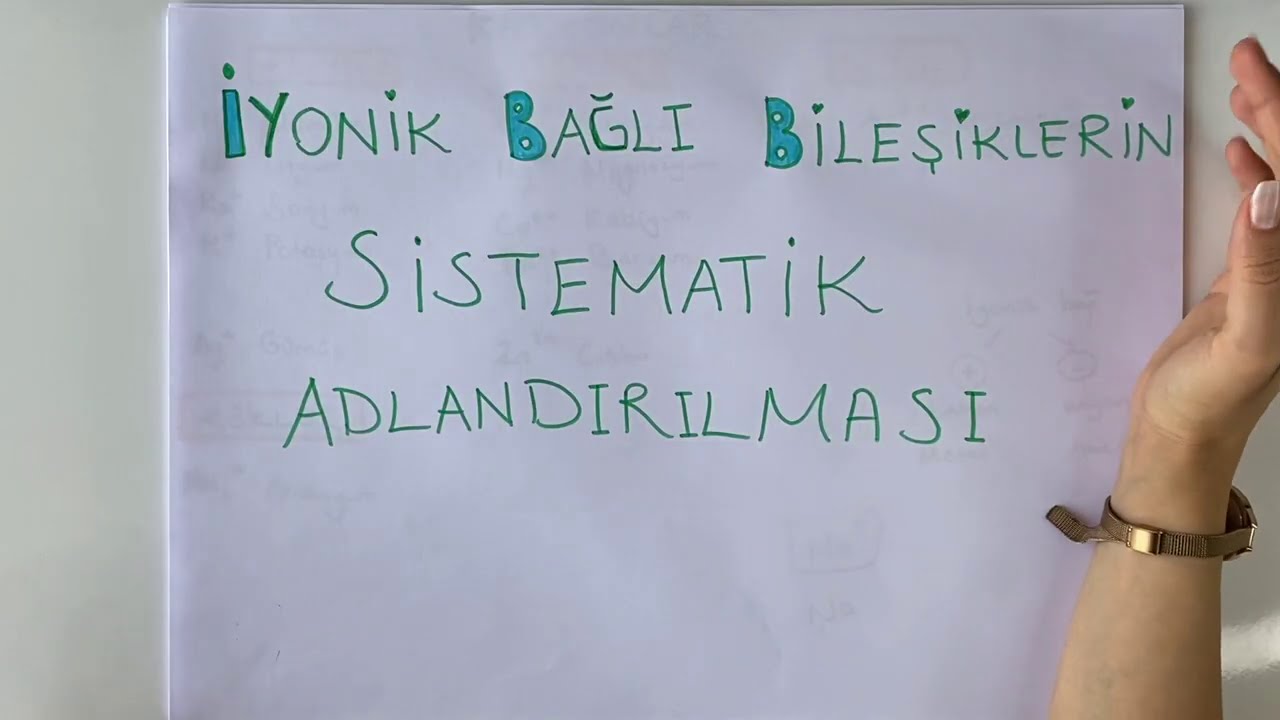 İYONİK BAĞLI BİLEŞİKLERİN
SİSTEMATİK
ADLANDIRILMASI